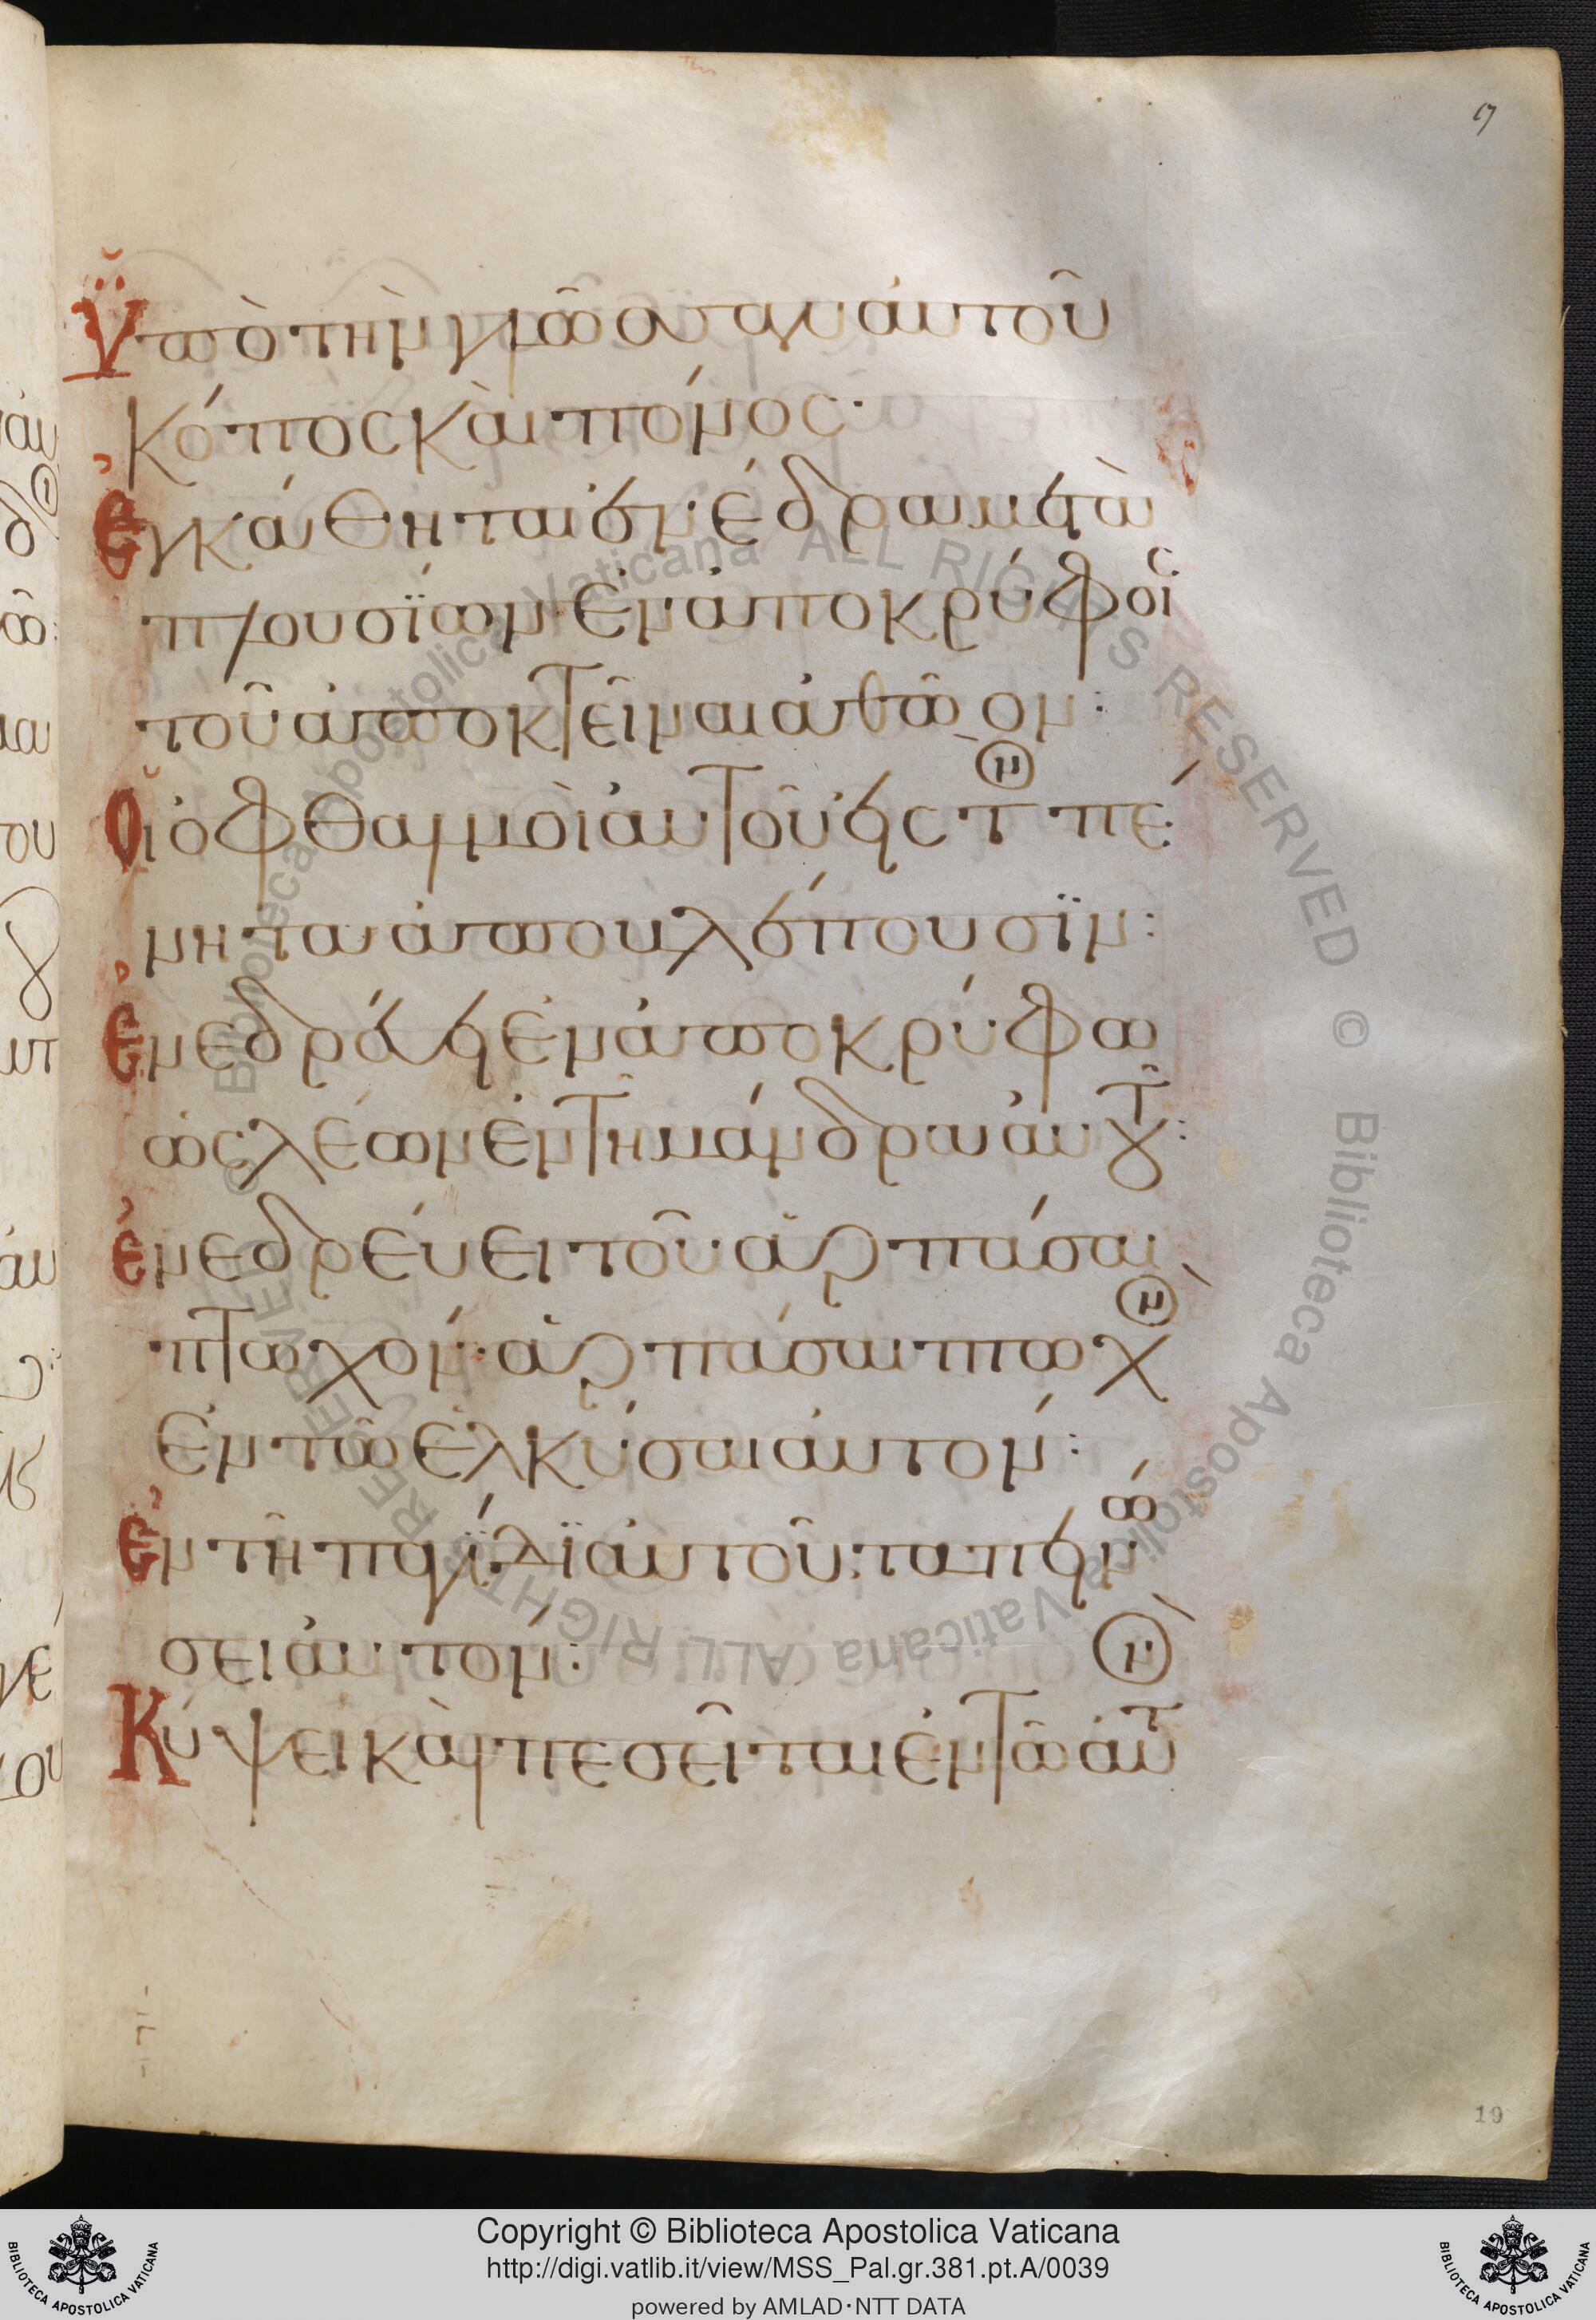 17
Ὑπὸ τὴν γλῶσσαν ἀυτοῦ
κόπος κὰι πόνος·
Ἐγκάθηται ἐν ἐνέδρα μετὰ
πλουσΐων· ἐν ἀποκρύφοις
τοῦ ἀποκτεῖναι ἀθῶον:
Ὁι ὀφθαλμὸι ἀυτοῦ εἰς τὸν πέ
νητα ἀποβλέπουσϊν:
Ἐνεδρέυει ἐν ἀποκρύφω
ὡς λέων ἐν τῆ μάνδρα ἀυτοῦ:
ἐνεδρέυει τοῦ ἁρπάσαι
πτωχόν· ἁρπάσαι πτωχὸν
ἐν τῶ ἑλκύσαι ἀυτόν:
Ἐν τῆ παγΐδϊ ἀυτοῦ ταπεινώ
σει ἀυτόν:
Κύψει κὰι πεσεῖται ἐν τῶ ἀυτὸν
19
Copyright © Biblioteca Apostolica Vaticana
http://digi.vatlib.it/view/MSS_Pal.gr.381.pt.A/0039
powered by AMLAD·NTT DATA
BIBLIOTECA APOSTOLICA VATICANA
BIBLIOTECA APOSTOLICA VATICANA
© Biblioteca Apostolica Vaticana ALL RIGHTS RESERVED © Biblioteca Apostolica Vaticana ALL RIGHTS RESERVED